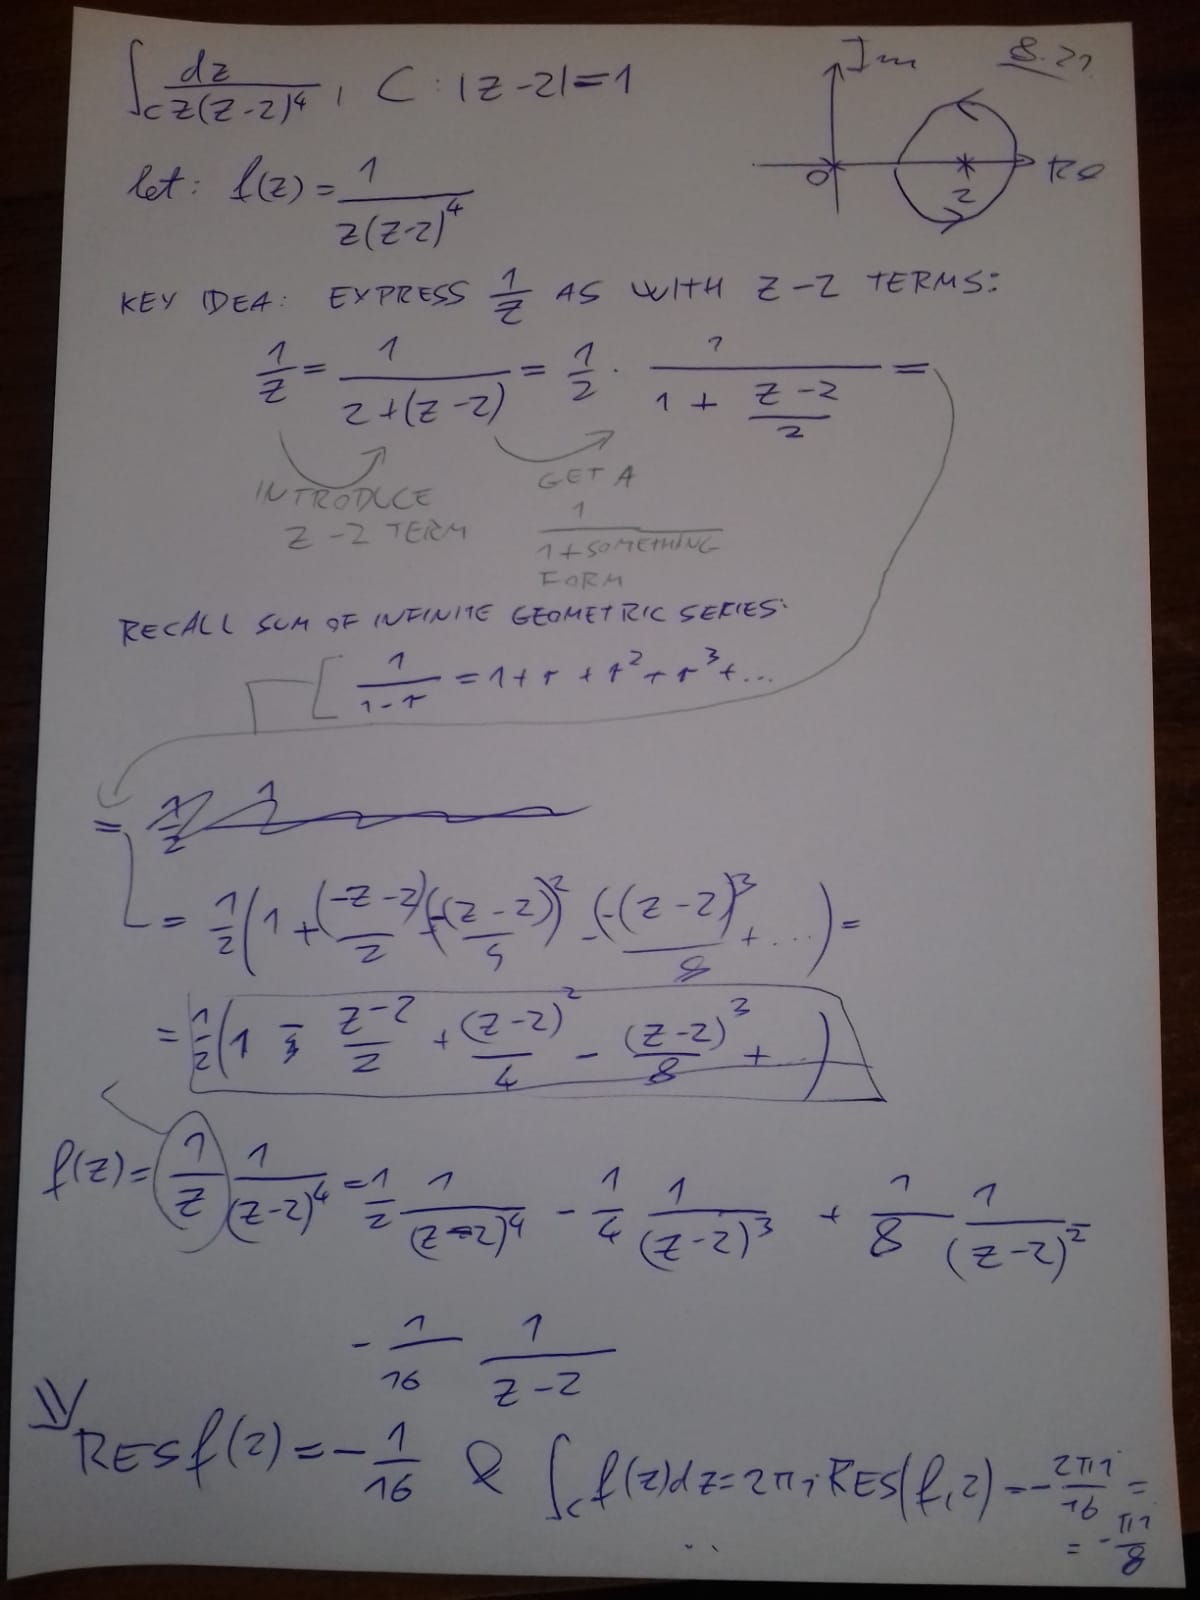 ∫_C dz / z(z-2)^4 , C: |z-2| = 1
8.21
Im
Re
0
2
let: f(z) = 1 / z(z-2)^4
KEY IDEA: EXPRESS 1/z AS WITH z-2 TERMS:
1/z = 1 / 2+(z-2) = 1/2 · 1 / (1 + (z-2)/2) =
INTRODUCE
z-2 TERM
GET A
1 / 1+SOMETHING
FORM
RECALL SUM OF INFINITE GEOMETRIC SERIES:
1/(1-r) = 1 + r + r^2 + r^3 + ...
= 1/2 (1 + (-z-2)/2 + (-(z-2))^2/4 - (-(z-2))^3/8 + ...) =
= 1/2 (1 - (z-2)/2 + (z-2)^2/4 - (z-2)^3/8 + ...)
f(z) = 1/z 1/(z-2)^4 = 1/2 1/(z-2)^4 - 1/4 1/(z-2)^3 + 1/8 1/(z-2)^2
- 1/16 1/(z-2)
⇓
RES f(2) = - 1/16 & ∫_C f(z)dz = 2πi RES(f,2) = - 2πi/16 =
= - πi/8